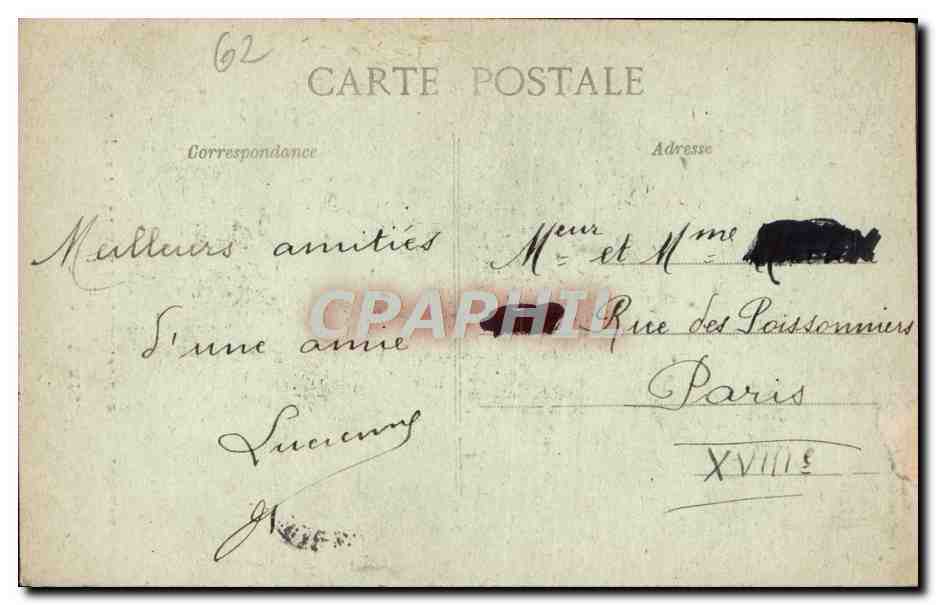 62
CARTE POSTALE
Correspondance
Adresse
Meilleurs amitiés
d'une amie
Lucienne
Meur et Mme
Rue des Poissonniers
Paris
XVIIIe
CPAPHIL